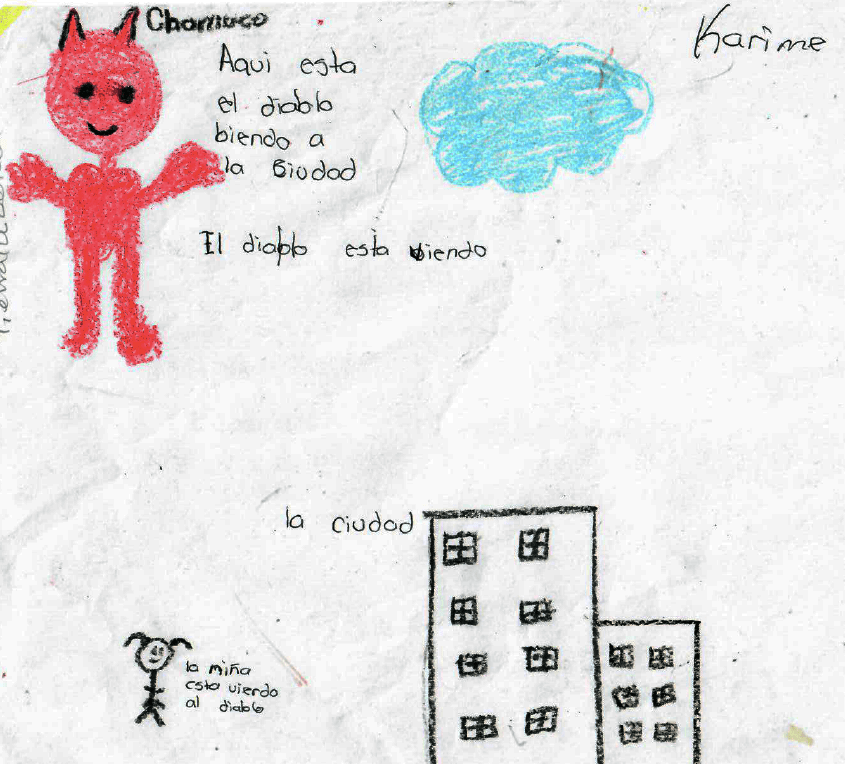 Chamuco
Karime
Aqui esta
el diablo
biendo a
la Siudad
El diablo esta viendo
la ciudad
la niña
esta viendo
al diablo